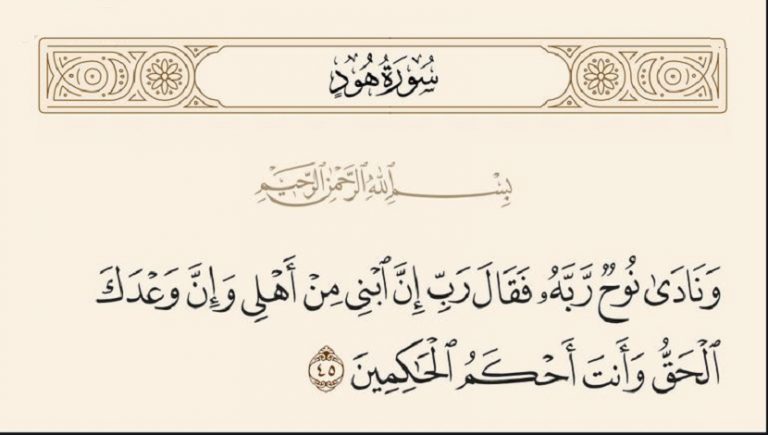 سُورَةُ هُودٍ
بِسْمِ ٱللَّهِ ٱلرَّحْمَٰنِ ٱلرَّحِيمِ
وَنَادَىٰ نُوحٌ رَّبَّهُۥ فَقَالَ رَبِّ إِنَّ ٱبْنِى مِنْ أَهْلِى وَإِنَّ وَعْدَكَ
ٱلْحَقُّ وَأَنتَ أَحْكَمُ ٱلْحَٰكِمِينَ ٤٥